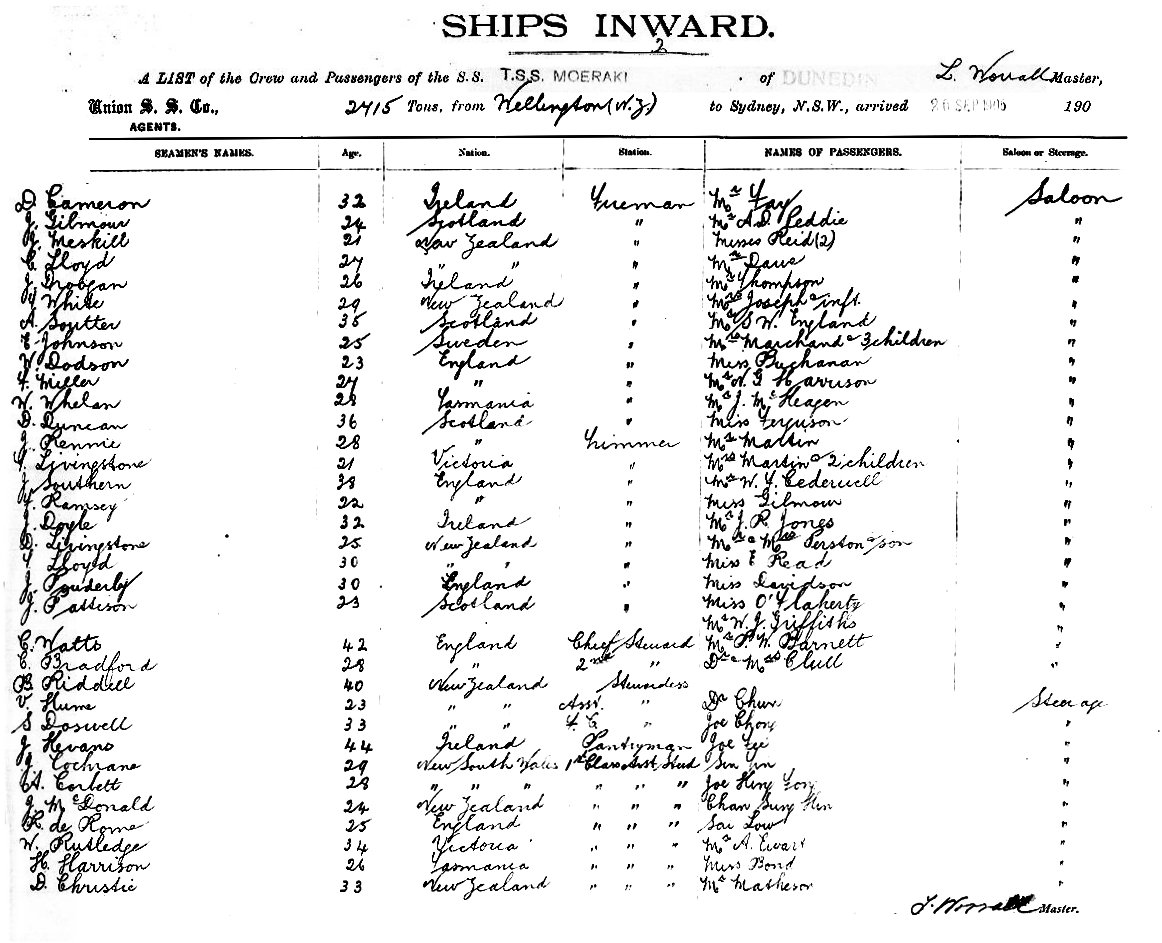 SHIPS INWARD.
2
A LIST of the Crew and Passengers of the S.S. T.S.S. MOERAKI of DUNEDIN L. Worrall Master,
Union S. S. Co., 2415 Tons, from Wellington (N.Z.) to Sydney, N.S.W., arrived 26 SEP 1905 190
AGENTS.
SEAMEN'S NAMES. Age. Nation. Station. NAMES OF PASSENGERS. Saloon or Steerage.
D. Cameron 32 Ireland Fireman Mr Fay Saloon
J. Gilmour 24 Scotland " Mr A.D. Peddie "
Meskill 21 New Zealand " Misses Reid (2) "
C. Lloyd 27 " " " Mr "
J. Grogan 26 Ireland " Mr Thompson "
White 29 New Zealand " Joseph & inft. "
A. Soutter 35 Scotland " Mr S W. England "
Johnson 25 Sweden " Mrs Marchand & 3 children "
W. Dodson 23 England " Miss Buchanan "
Miller 27 " " Mr W. G Harrison "
W. Whelan 28 Tasmania " Mr J. Mc Keagen "
D. Duncan 36 Scotland " Miss Ferguson "
J. Rennie 28 " Trimmer Mr Martin "
Livingstone 21 Victoria " Mrs Martin & 2 children "
J. Southern 38 England " Mr W. Y. Cederwell "
Ramsey 22 " " Miss Gilmour "
J. Doyle 32 Ireland " Mr J. R. Jones "
D. Livingstone 25 New Zealand " Mr & Mrs Perston & son "
Lloyd 30 " " " Miss E Read "
J. Pouderly 30 England " Miss Davidson "
J. Pattison 23 Scotland " Miss O'Flaherty "
Mr W. J. Griffiths "
C. Watts 42 England Chief Steward Mr P. W. Barnett "
E. Bradford 28 " 2nd " Dr & Mrs Clull "
B Riddell 40 New Zealand Stewardess
V. Hume 23 " " Asst. " Dr Steerage
S Doswell 33 " " " Joe Chong "
J Hevans 44 Ireland Pantryman Joe "
J Cochrane 29 New South Wales 1st Class Asst. Stwd "
A. Corbett 28 " " " " " " Joe Hing "
J. McDonald 24 New Zealand " " " Chan "
R. de Rome 25 England " " " Sai Low "
W. Rutledge 34 Victoria " " " Mr A. Ewart "
H. Harrison 26 Tasmania " " " Miss Bond "
D. Christie 33 New Zealand " " " Mr Matheson "
Worrall Master.